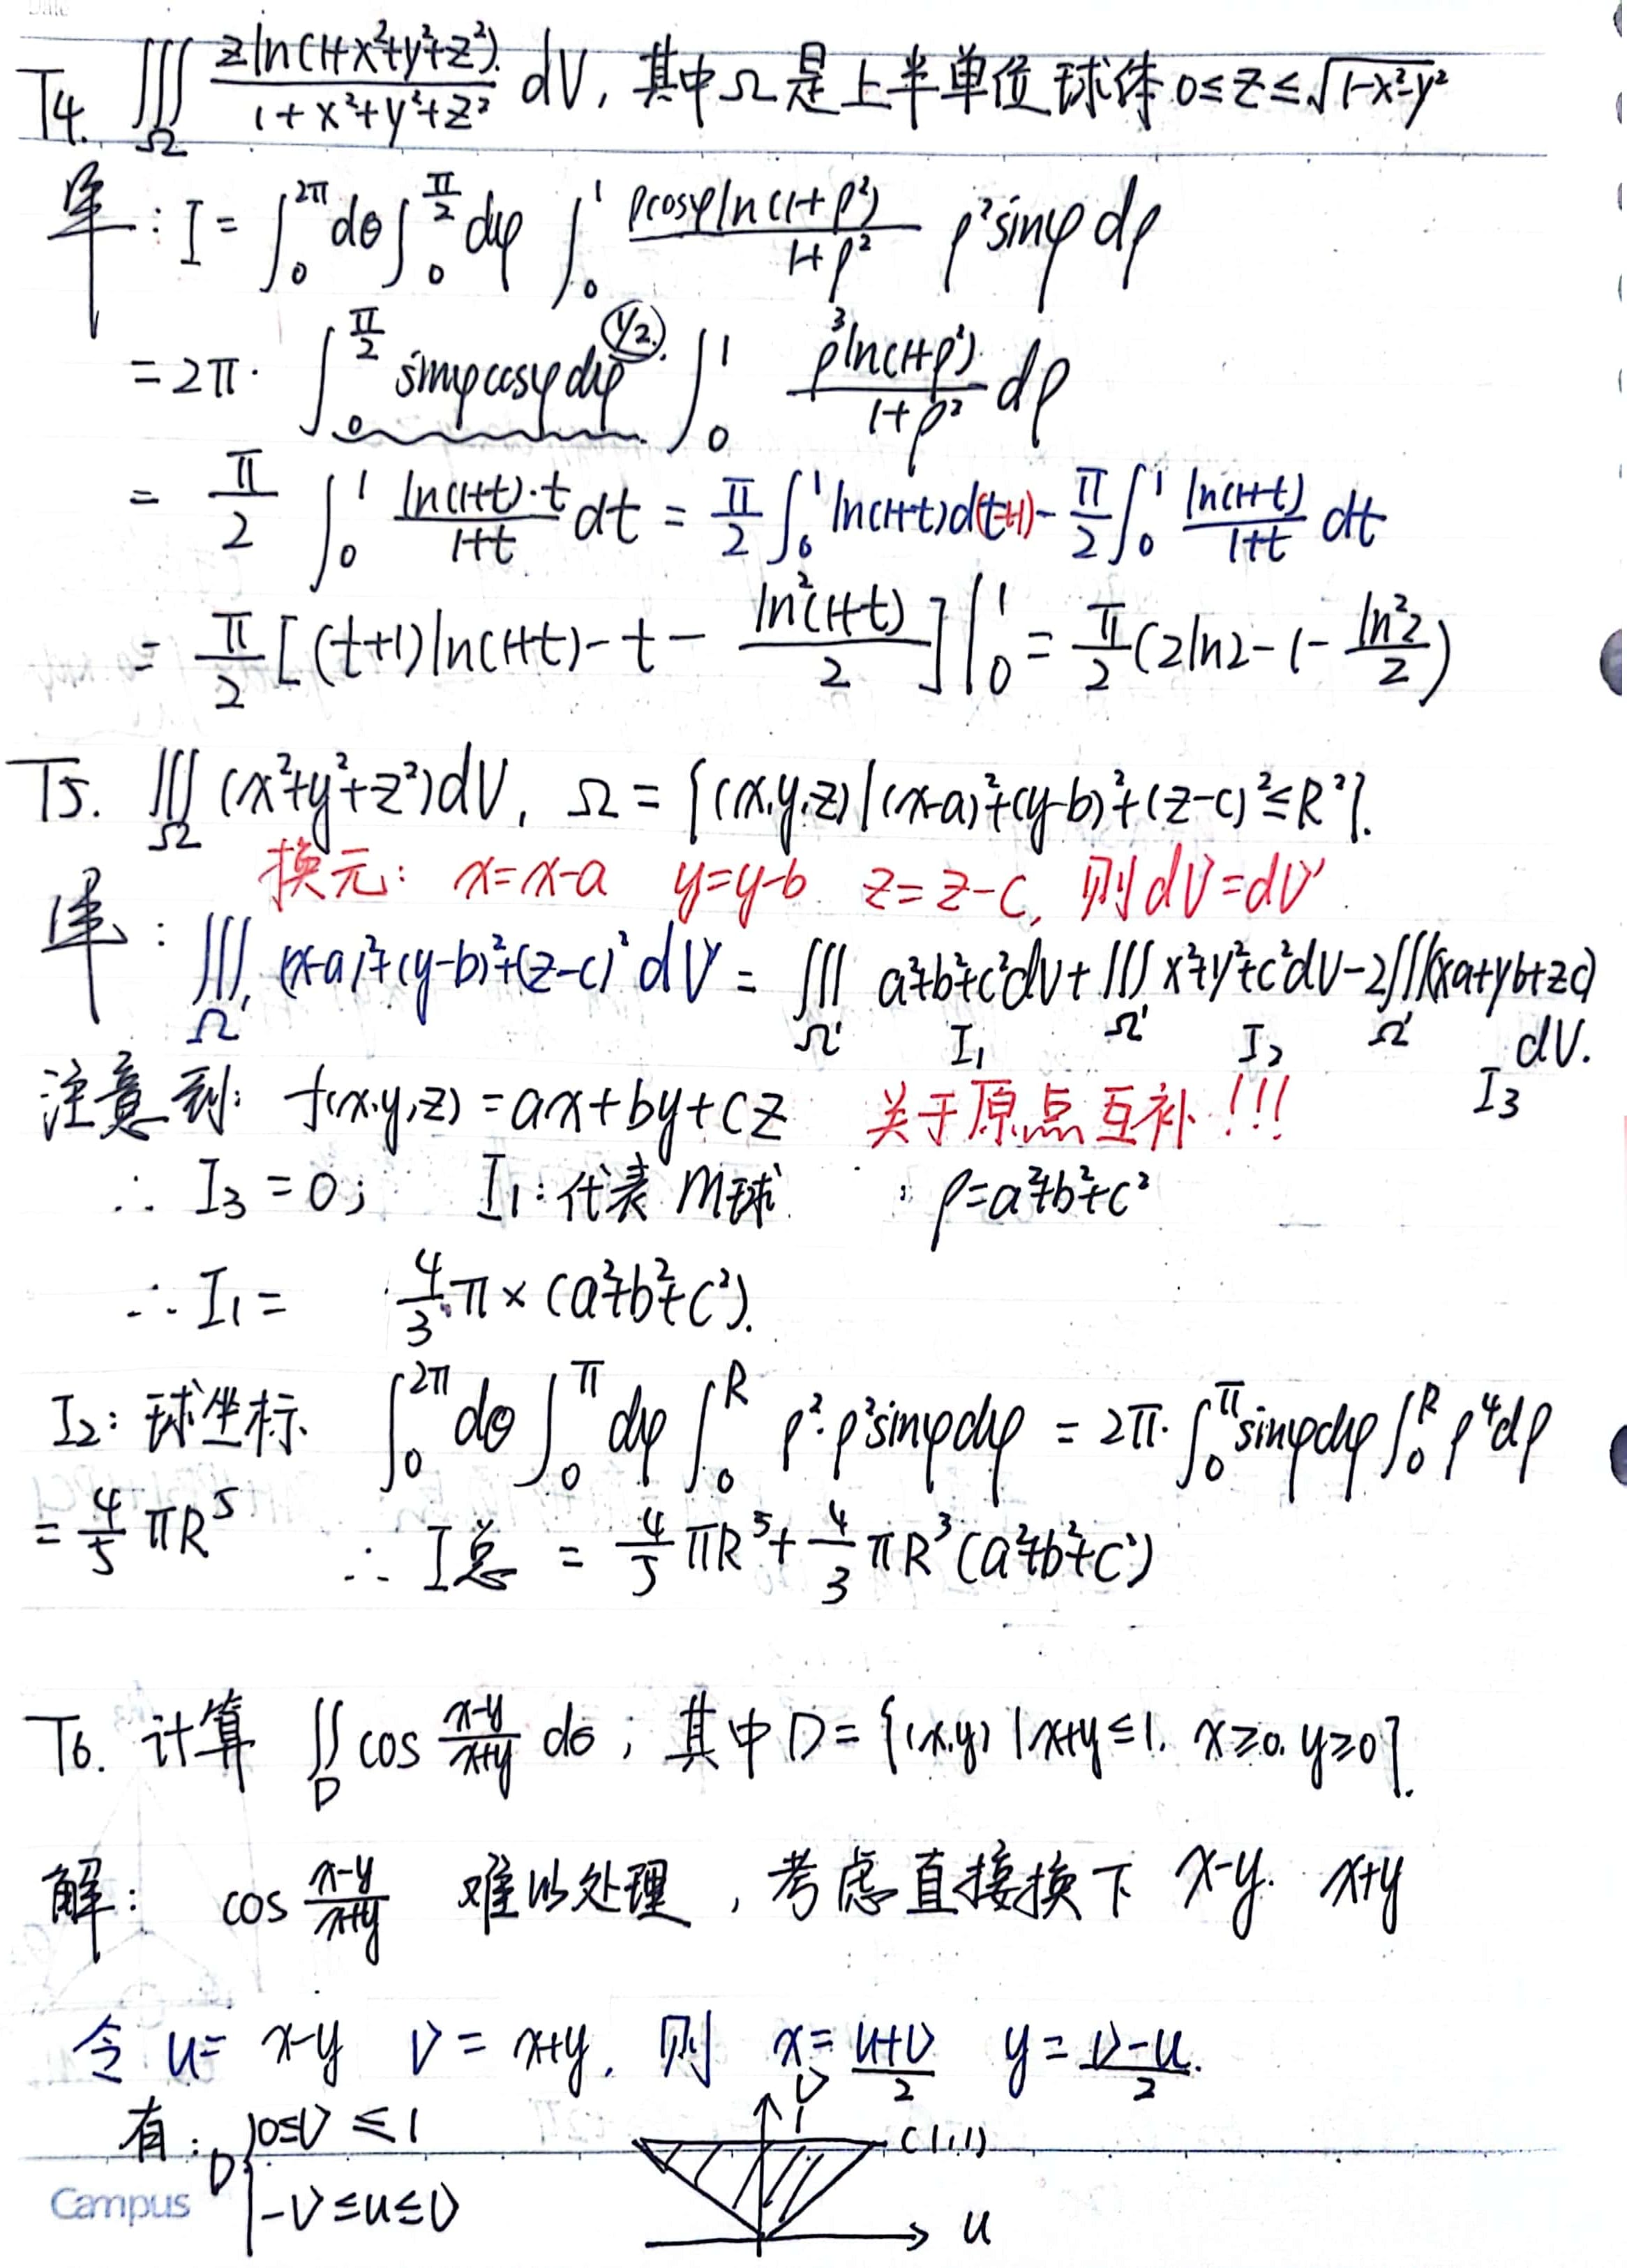 T4. ∭_Ω zln(1+x²+y²+z²)/(1+x²+y²+z²) dV, 其中Ω是上半单位球体 0≤z≤√(1-x²-y²)
解: I = ∫₀^{2π} dθ ∫₀^{π/2} dφ ∫₀¹ ρcosφln(1+ρ²)/(1+ρ²) ρ²sinφ dρ
= 2π· ∫₀^{π/2} sinφcosφdφ (1/2). ∫₀¹ ρ³ln(1+ρ²)/(1+ρ²) dρ
= π/2 ∫₀¹ ln(1+t)·t/(1+t) dt = π/2 ∫₀¹ ln(1+t)d(t+1) - π/2 ∫₀¹ ln(1+t)/(1+t) dt
= π/2 [(t+1)ln(1+t)-t- ln²(1+t)/2]|₀¹ = π/2 (2ln2-1- ln²2/2)
T5. ∭_Ω (x²+y²+z²)dV, Ω = {(x,y,z)|(x-a)²+(y-b)²+(z-c)²≤R²}.
换元: x=x-a y=y-b z=z-c, 则dV=dV'
解: ∭_Ω' (x-a)²+(y-b)²+(z-c)² dV' = ∭_Ω' a²+b²+c²dV + ∭_Ω' x²+y²+c²dV - 2∭_Ω'(xa+yb+zc)
I₁ I₂ dV.
I₃
注意到: f(x,y,z) = ax+by+cz 关于原点互补!!!
∴ I₃ = 0; I₁:代表 M球 ρ=a²+b²+c²
∴ I₁ = 4/3 π×(a²+b²+c²).
I₂: 球坐标. ∫₀^{2π} dθ ∫₀^π dφ ∫₀^R ρ²·ρ²sinφdφ = 2π· ∫₀^π sinφdφ ∫₀^R ρ⁴dρ
= 4/5 πR⁵ ∴ I总 = 4/5 πR⁵ + 4/3 πR³(a²+b²+c²)
T6. 计算 ∬_D cos (x-y)/(x+y) dσ; 其中D={(x,y)|x+y≤1. x≥0. y≥0}.
解: cos (x-y)/(x+y) 难以处理, 考虑直接换下 x-y. x+y
令 u= x-y v = x+y, 则 x= (u+v)/2 y = (v-u)/2.
有: D{0≤v ≤1 v 1 (1,1)
-v≤u≤v u
Campus